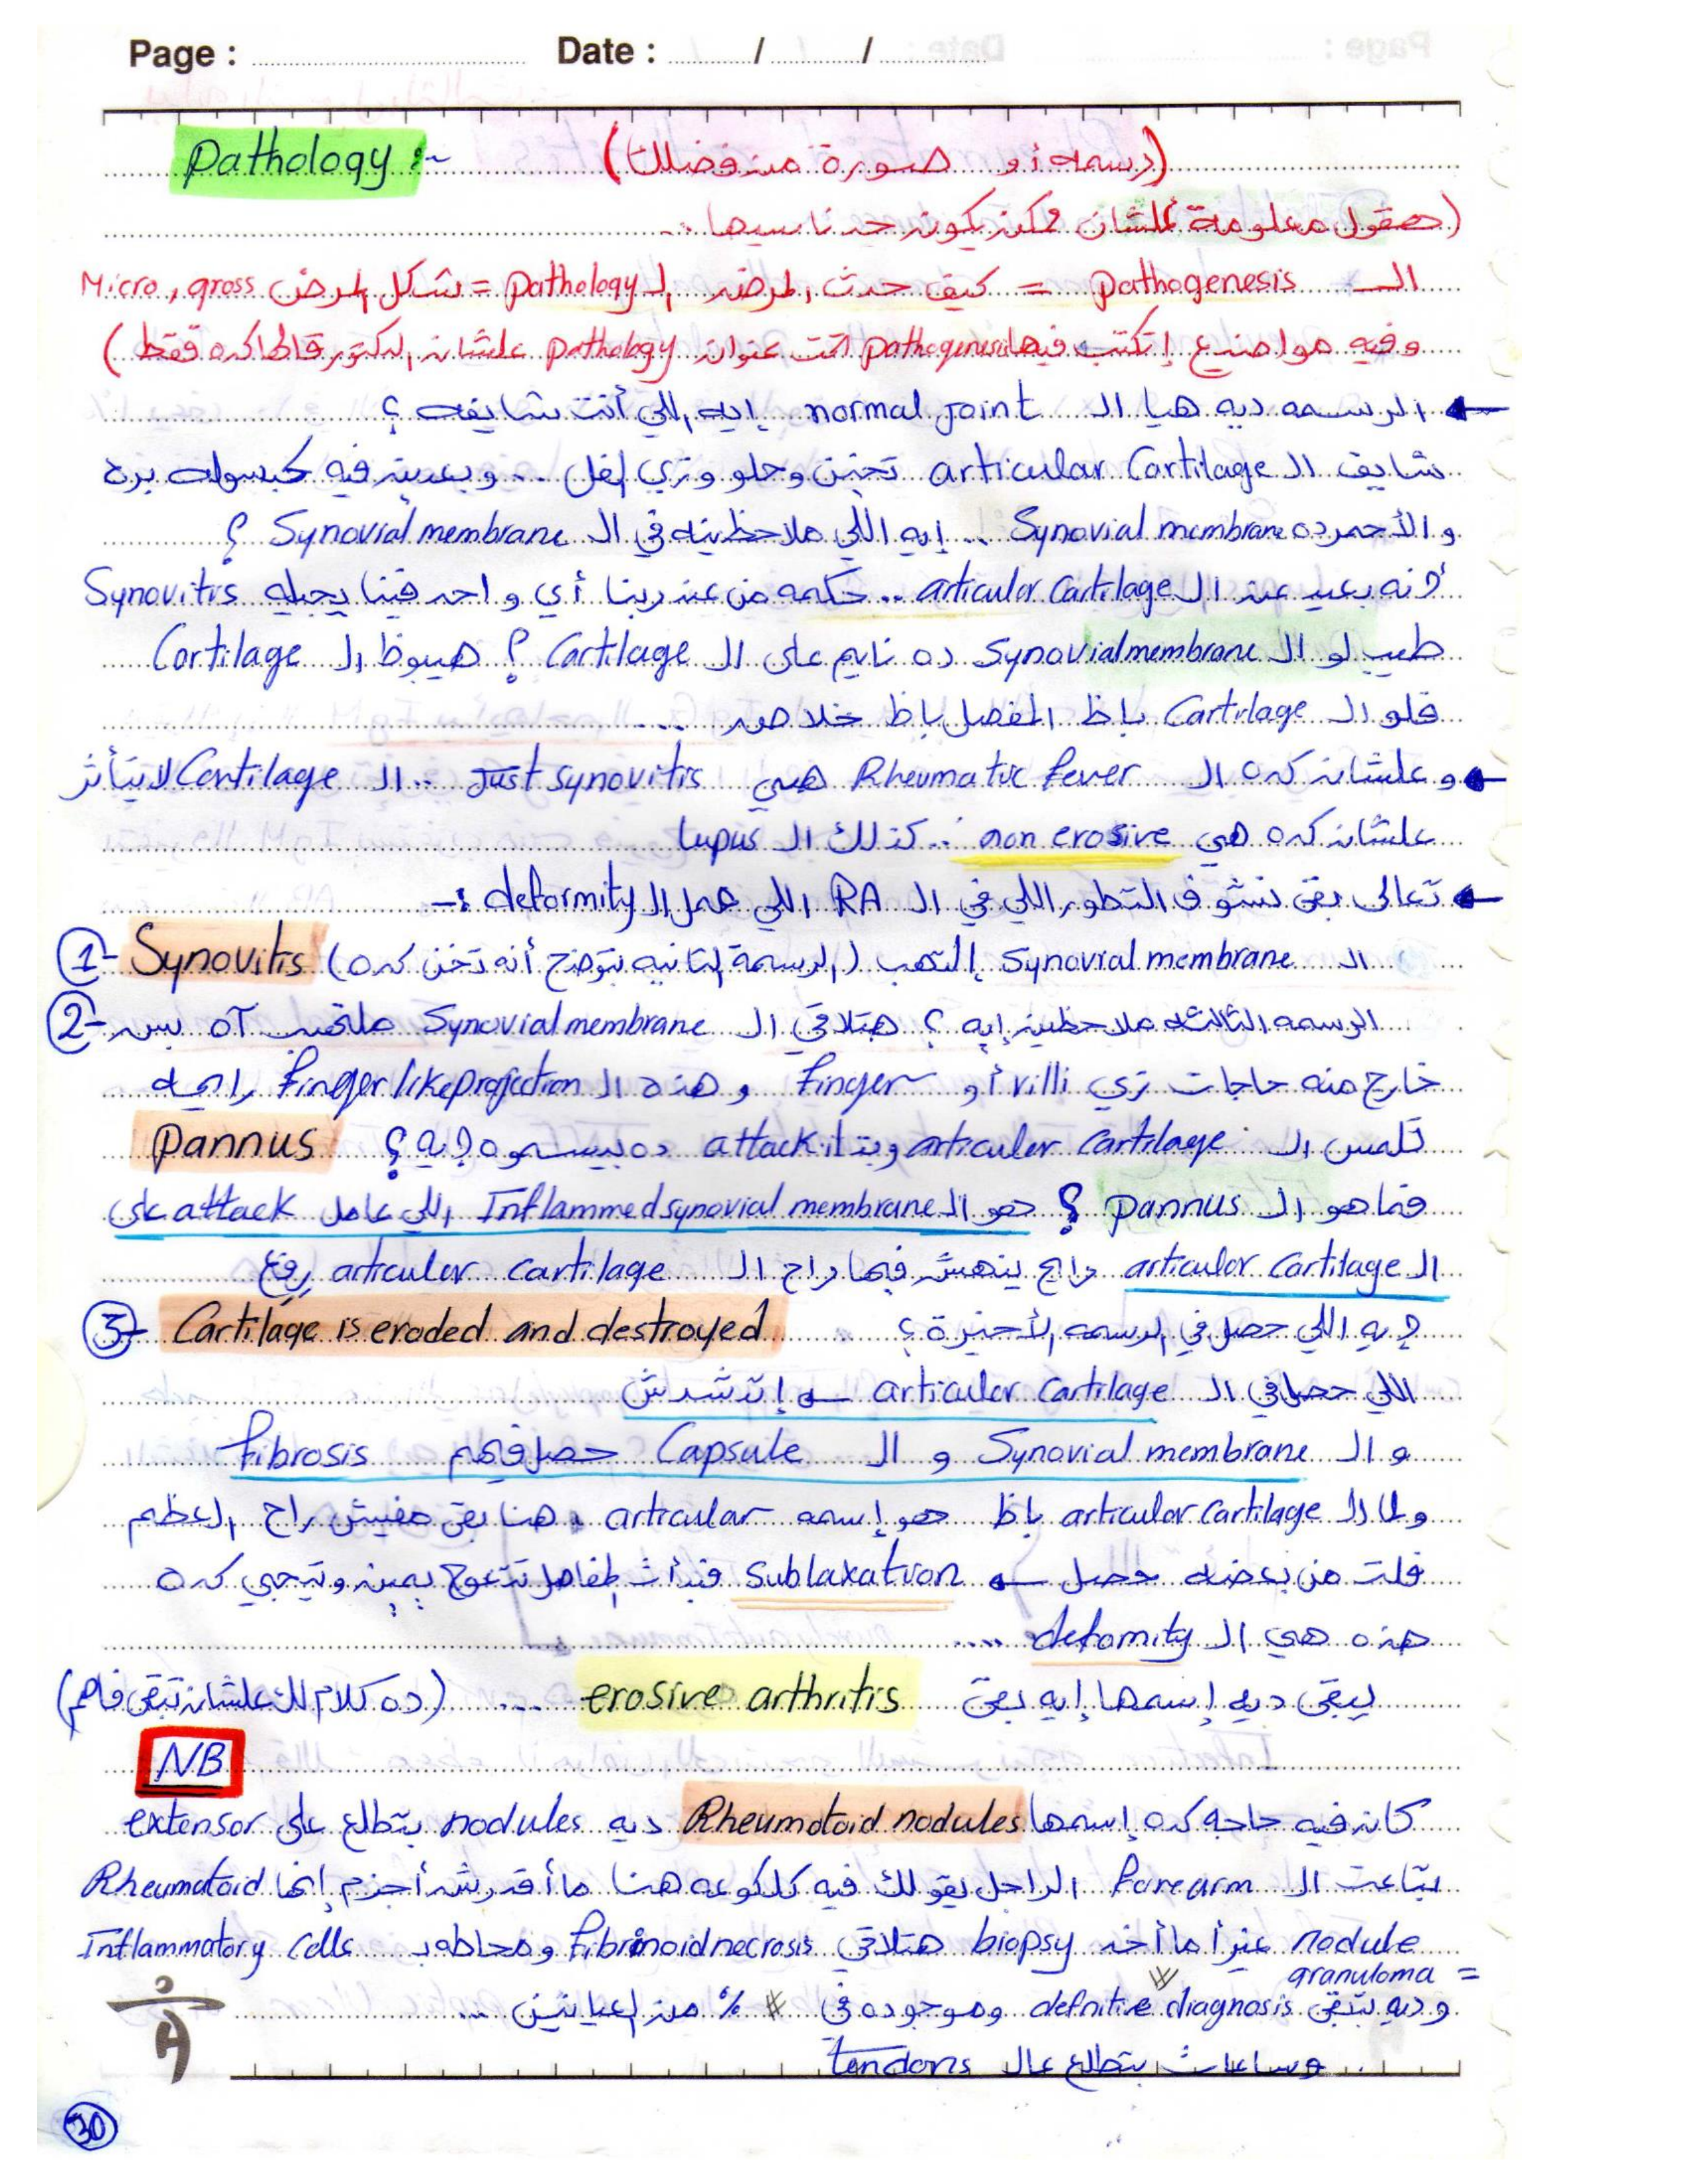 Page : Date : / /
Pathology :- (رسمه أو صورة من فضلك)
(هقول معلومة علشان ممكن يكون حد ناسيها ..
الـ pathogenesis = كيف حدث المرض الـ pathology = شكل المرض Micro, gross
وفيه مواضيع إتكتب فيها pathogenesis تحت عنوان pathology علشان الدكتور قالها كده فقط)
← الرسمه ديه هيا الـ normal joint إيه اللي أنت شايفه ؟
شايف الـ articular Cartilage تخين وحلو وزي الفل .. وبعدين فيه كبسوله بره
والأحمر ده Synovial membrane .. إيه اللي ملاحظينه في الـ Synovial membrane ؟
أنه بعيد عن الـ articular cartilage .. حكمه من عند ربنا أي واحد فينا يجيله Synovitis
طيب لو الـ Synovial membrane ده نايم على الـ Cartilage ؟ هيبوظ الـ Cartilage
فلو الـ Cartilage باظ المفصل باظ خلاص ....
← وعلشان كده الـ Rheumatic fever هي Just synovitis .. الـ Cartilage لا يتأثر
علشان كده هي non erosive .. كذلك الـ lupus
← تعالى بقى نشوف التطور اللي في الـ RA اللي عمل الـ deformity :-
1- Synovitis الـ Synovial membrane إلتهب (الرسمة التانيه بتوضح أنه تخن كده)
2- الرسمه التالته ملاحظين إيه ؟ هتلاقي الـ Synovial membrane ملتهب آه بس
خارج منه حاجات زي villi أو Finger وهذه الـ Finger like projection رايحه
تلمس الـ articular cartilage وبتـ attack ده بيسموه إيه ؟ Pannus
فما هو الـ pannus ؟ هو الـ Inflammed synovial membrane اللي عامل attack على
الـ articular cartilage رايح ينهش فيها راح الـ articular cartilage رفيع
3- Cartilage is eroded and destroyed إيه اللي حصل في الرسمه الأخيرة ؟
اللي حصل في الـ articular cartilage ← إتدشدش
و الـ Synovial membrane و الـ Capsule حصل فيهم Fibrosis
ولما الـ articular cartilage باظ هو إسمه articular هنا بقى مفيش راح العظم
فلت من بعضه حصل ← sublaxation فبدأت المفاصل تتعوج يمين وتيجي كده
هذه هي الـ defomity ....
يبقى ديه إسمها إيه بقى erosive arthritis .... (ده كلام لك علشان تبقى فاهم)
NB
كان فيه حاجه كده إسمها Rheumatoid nodules ديه nodules بتطلع على extensor
بتاعت الـ Forearm الراجل يقولك فيه كلكوعه هنا ما أقدرش أجزم إنها Rheumatoid
nodule غير أما أخد biopsy هتلاقي Fibrinoid necrosis ومحاطه بـ Inflammatory cells
= granuloma
وديه بتبقى definitive diagnosis وموجوده في % من العيانين ...
وساعات بتطلع عالـ tendons
30